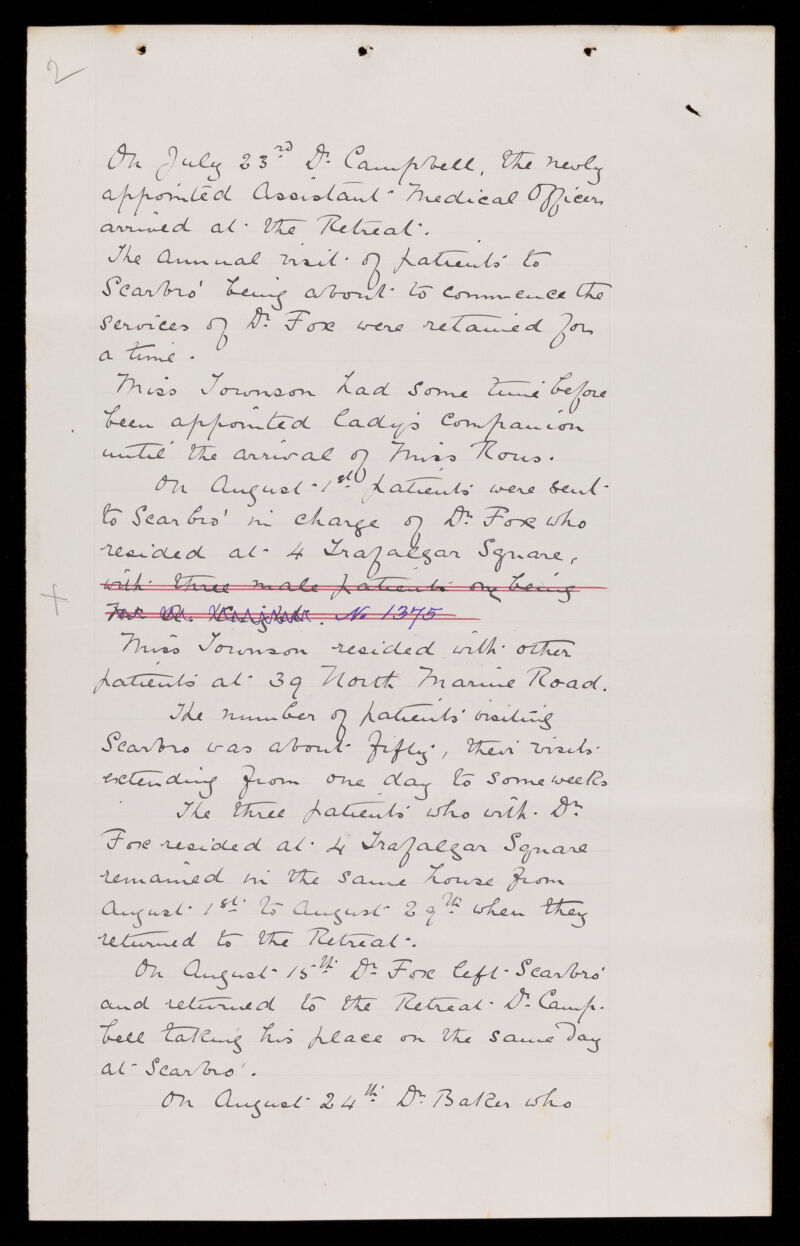 2
On July 23rd Dr. Campbell, the newly
appointed Assistant Medical Officer
arrived at the Retreat.
The Annual visit of patients to
Scarbro' being about to commence the
services of Dr. Fox were retained for
a time.
Miss Townson had some time before
been appointed lady's companion
until the arrival of Miss Rous.
On August 1st patients were sent
to Scarbro' in charge of Dr. Fox who
resided at 4 Trafalgar Square,
with three male patients one being
No 1375
Miss Townson resided with other
patients at 39 North Marine Road.
The number of patients visiting
Scarbro was about fifty, their visits
extending from one day to some weeks
The three patients who with Dr.
Fox resided at 4 Trafalgar Square
remained in the same house from
August 1st to August 29th when they
returned to the Retreat.
On August 15th Dr. Fox left Scarbro'
and returned to the Retreat Dr. Camp-
bell taking his place on the same day
at Scarbro'.
On August 24th Dr. Baker who